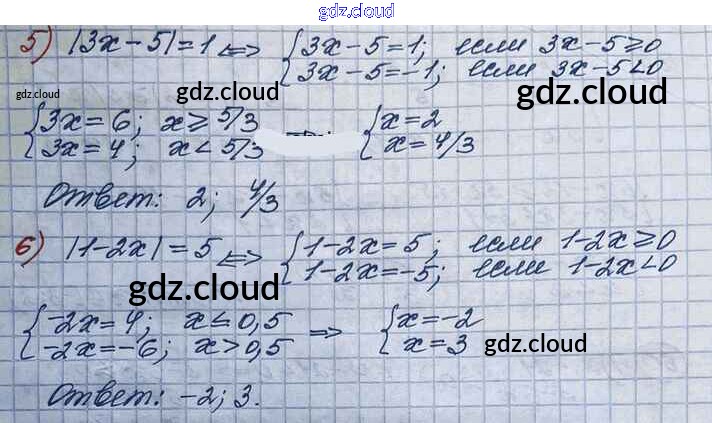 gdz.cloud
5) |3x-5|=1 <=> {3x-5=1; если 3x-5≥0
{3x-5=-1; если 3x-5<0
gdz.cloud gdz.cloud gdz.cloud
{3x=6; x≥5/3 {x=2
{3x=4; x<5/3 {x=4/3
Ответ: 2; 4/3
6) |1-2x|=5 <=> {1-2x=5; если 1-2x≥0
{1-2x=-5; если 1-2x<0
gdz.cloud
{-2x=4; x≤0,5 => {x=-2
{-2x=-6; x>0,5 {x=3
gdz.cloud
Ответ: -2; 3.